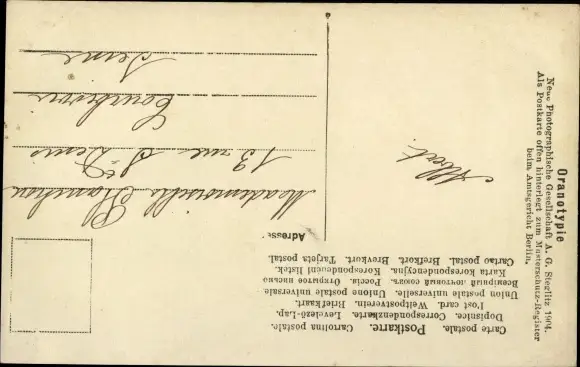 Carte postale. Postkarte. Cartolina postale.
Dopisnice. Correspondenzkarte. Levelező-Lap.
Post card. Weltpostverein. Briefkaart.
Union postale universelle. Unione postale universale.
Всемірный почтовый союзъ. Россія. Открытое письмо
Karta korespondencyjna. Korespondenční lístek.
Cartao postal. Brefkort. Brevkort. Tarjeta postal.
Adresse:
Mademoiselle
13 rue St Denis
Courbevoie
Seine
Oranotypie
Neue Photographische Gesellschaft A. G. Steglitz 1904.
Als Postkarte offen hinterlegt zum Musterschutz-Register
beim Amtsgericht Berlin.